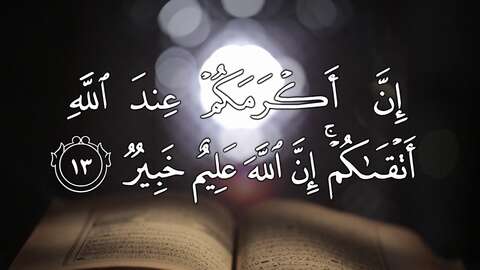 إِنَّ أَكْرَمَكُمْ عِندَ ٱللَّهِ
أَتْقَىٰكُمْ ۚ إِنَّ ٱللَّهَ عَلِيمٌ خَبِيرٌ ١٣